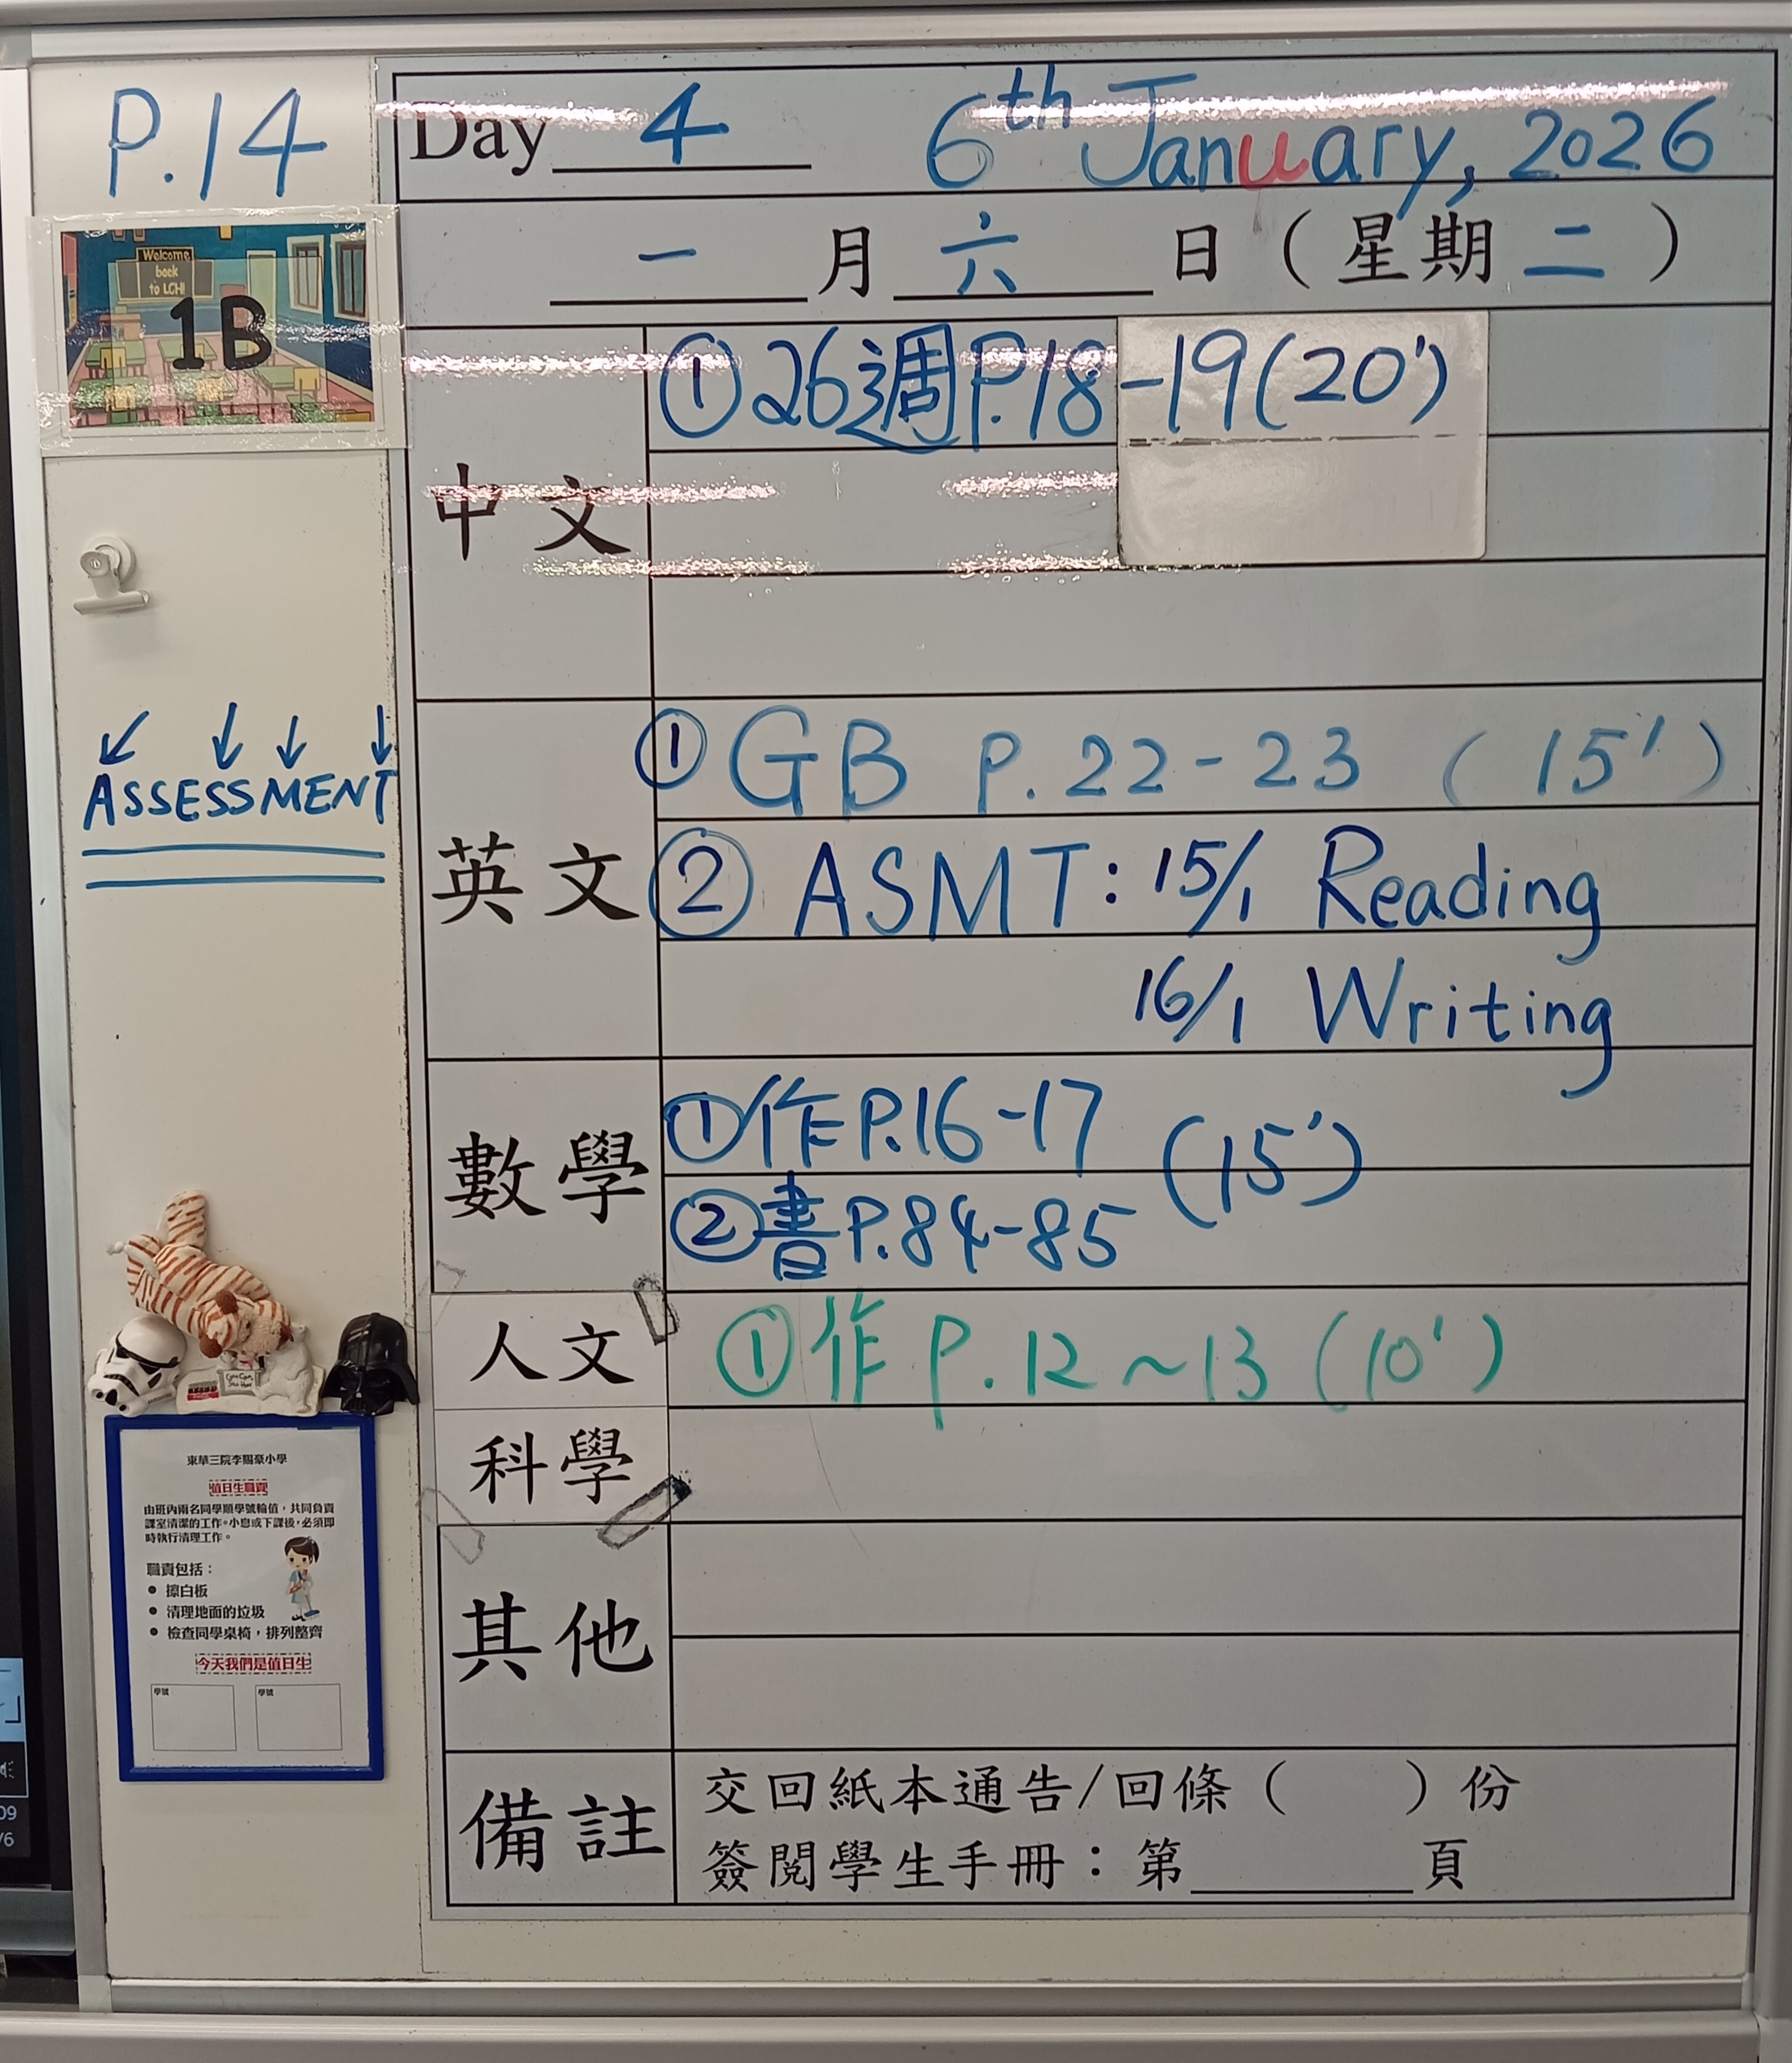 P.14
Day 4 6th January, 2026
一月六日（星期二）
Welcome
back
to LCH!
1B
中文
①26週P.18-19(20')
ASSESSMENT
英文
① GB P.22-23 (15')
② ASMT: 15/1 Reading
16/1 Writing
數學
①作P.16-17
(15')
②書P.84-85
人文
①作 P.12~13 (10')
科學
其他
備註
交回紙本通告/回條（　　）份
簽閱學生手冊：第____頁
東華三院李賜豪小學
值日生職責
由班內兩名同學順學號輪值，共同負責
課室清潔的工作。小息或下課後，必須即
時執行清理工作。
職責包括：
• 擦白板
• 清理地面的垃圾
• 檢查同學桌椅，排列整齊
今天我們是值日生
學號 學號